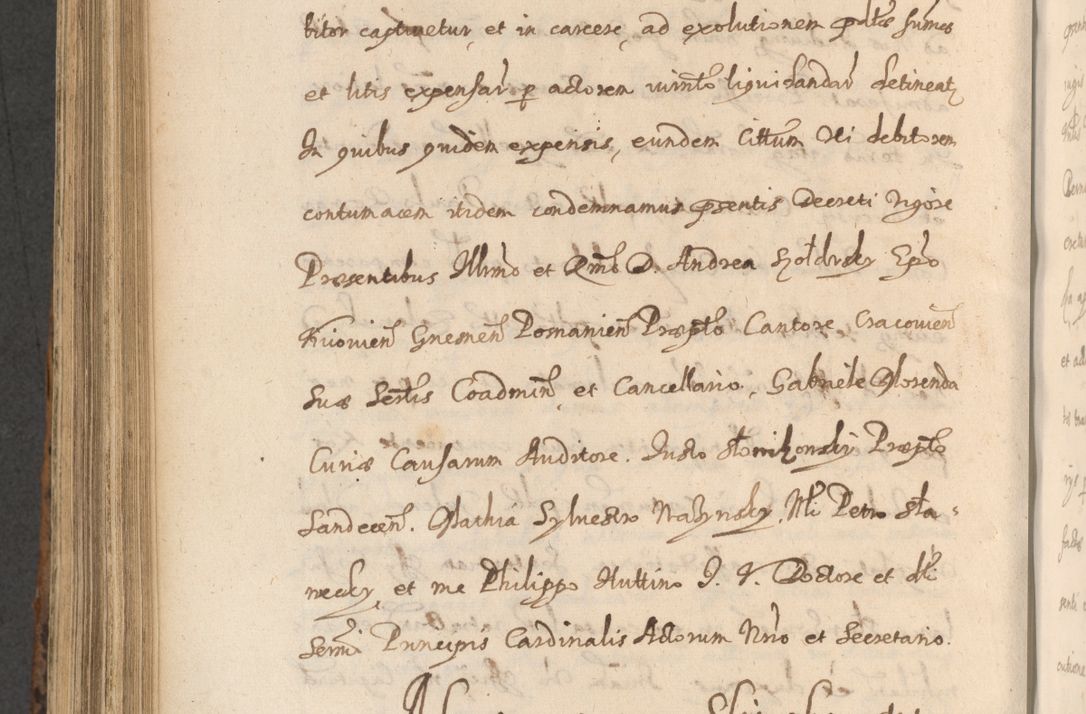 bitor captivetur, et in carcere, ad exolutionem pdtæ sumæ
et litis expensar̃ p actorem iuram̃to liquidandar̃ detineatr
In quibus quidem expensis, eundem Cittum Uti debitorem
contumacem itidem condemnamus pñsentis Decreti vigore
Præsentibus Illmo et Rmo D. Andrea Szołdrsky Epo
Kiiovien̄ Gnesnen̄ Posnanien̄ Præpto Cantore Cracovien̄
Suæ Sertis Coadmin̄, et Cancellario, Gabriele Morenda
Curiæ Causarum Auditore. Justo Słowikowsky Præpto
Sandecen̄. Mathia Sylvestro Wazynsky. Ntli Petro Sta-
necky, et me Philippo Huttino J. V. Doctore et dti
Sermi Principis Cardinalis Actorum Nrio et Secretario.